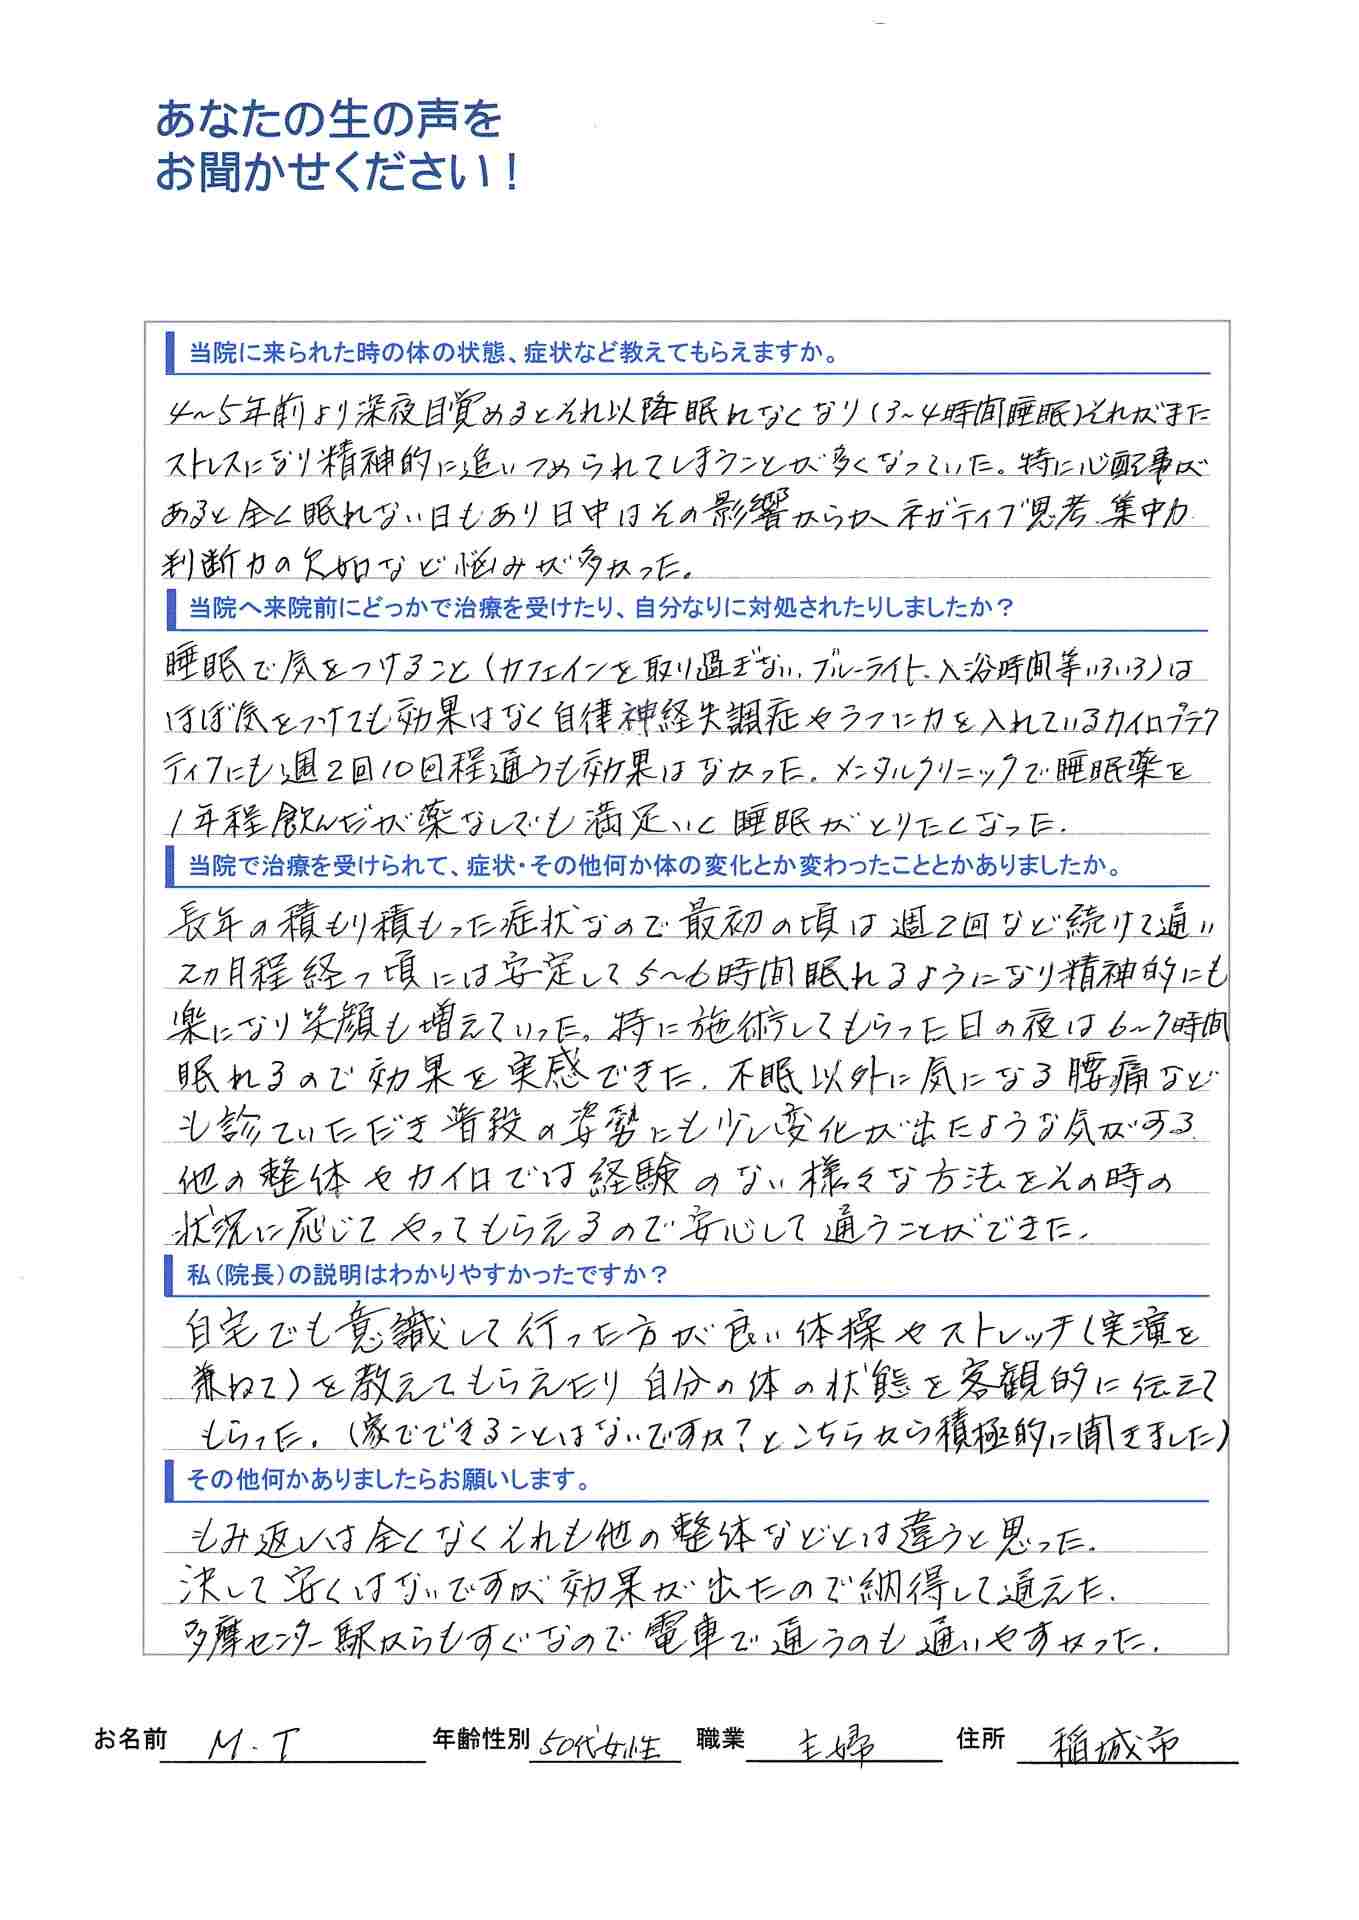 あなたの生の声を
お聞かせください！
当院に来られた時の体の状態、症状など教えてもらえますか。
4～5年前より深夜目覚めるとそれ以降眠れなくなり(3～4時間睡眠)それがまた
ストレスになり精神的に追いつめられてしまうことが多くなっていた。特に心配事が
あると全く眠れない日もあり日中はその影響からか、ネガティブ思考、集中力
判断力の欠如など悩みが多かった。
当院へ来院前にどっかで治療を受けたり、自分なりに対処されたりしましたか？
睡眠で気をつけること(カフェインを取り過ぎない、ブルーライト、入浴時間等いろいろ)は
ほぼ気をつけても効果はなく自律神経失調症やうつに力を入れているカイロプラク
ティクにも週2回10回程通うも効果はなかった。メンタルクリニックで睡眠薬を
1年程飲んだが薬なしでも満足いく睡眠がとりたくなった。
当院で治療を受けられて、症状・その他何か体の変化とか変わったこととかありましたか。
長年の積もり積もった症状なので最初の頃は週2回など続けて通い
2カ月程経つ頃には安定して5～6時間眠れるようになり精神的にも
楽になり笑顔も増えていった。特に施術してもらった日の夜は6～7時間
眠れるので効果を実感できた。不眠以外に気になる腰痛など
も診ていただき普段の姿勢にも少し変化が出たような気がする。
他の整体やカイロでは経験のない様々な方法をその時の
状況に応じてやってもらえるので安心して通うことができた。
私（院長）の説明はわかりやすかったですか？
自宅でも意識して行った方が良い体操やストレッチ(実演を
兼ねて)を教えてもらえたり自分の体の状態を客観的に伝えて
もらった。(家でできることはないですか？とこちらから積極的に聞きました)
その他何かありましたらお願いします。
もみ返しは全くなくそれも他の整体などとは違うと思った。
決して安くはないですが効果が出たので納得して通えた。
多摩センター駅からもすぐなので電車で通うのも通いやすかった。
お名前 M.T 年齢性別 50代女性 職業 主婦 住所 稲城市